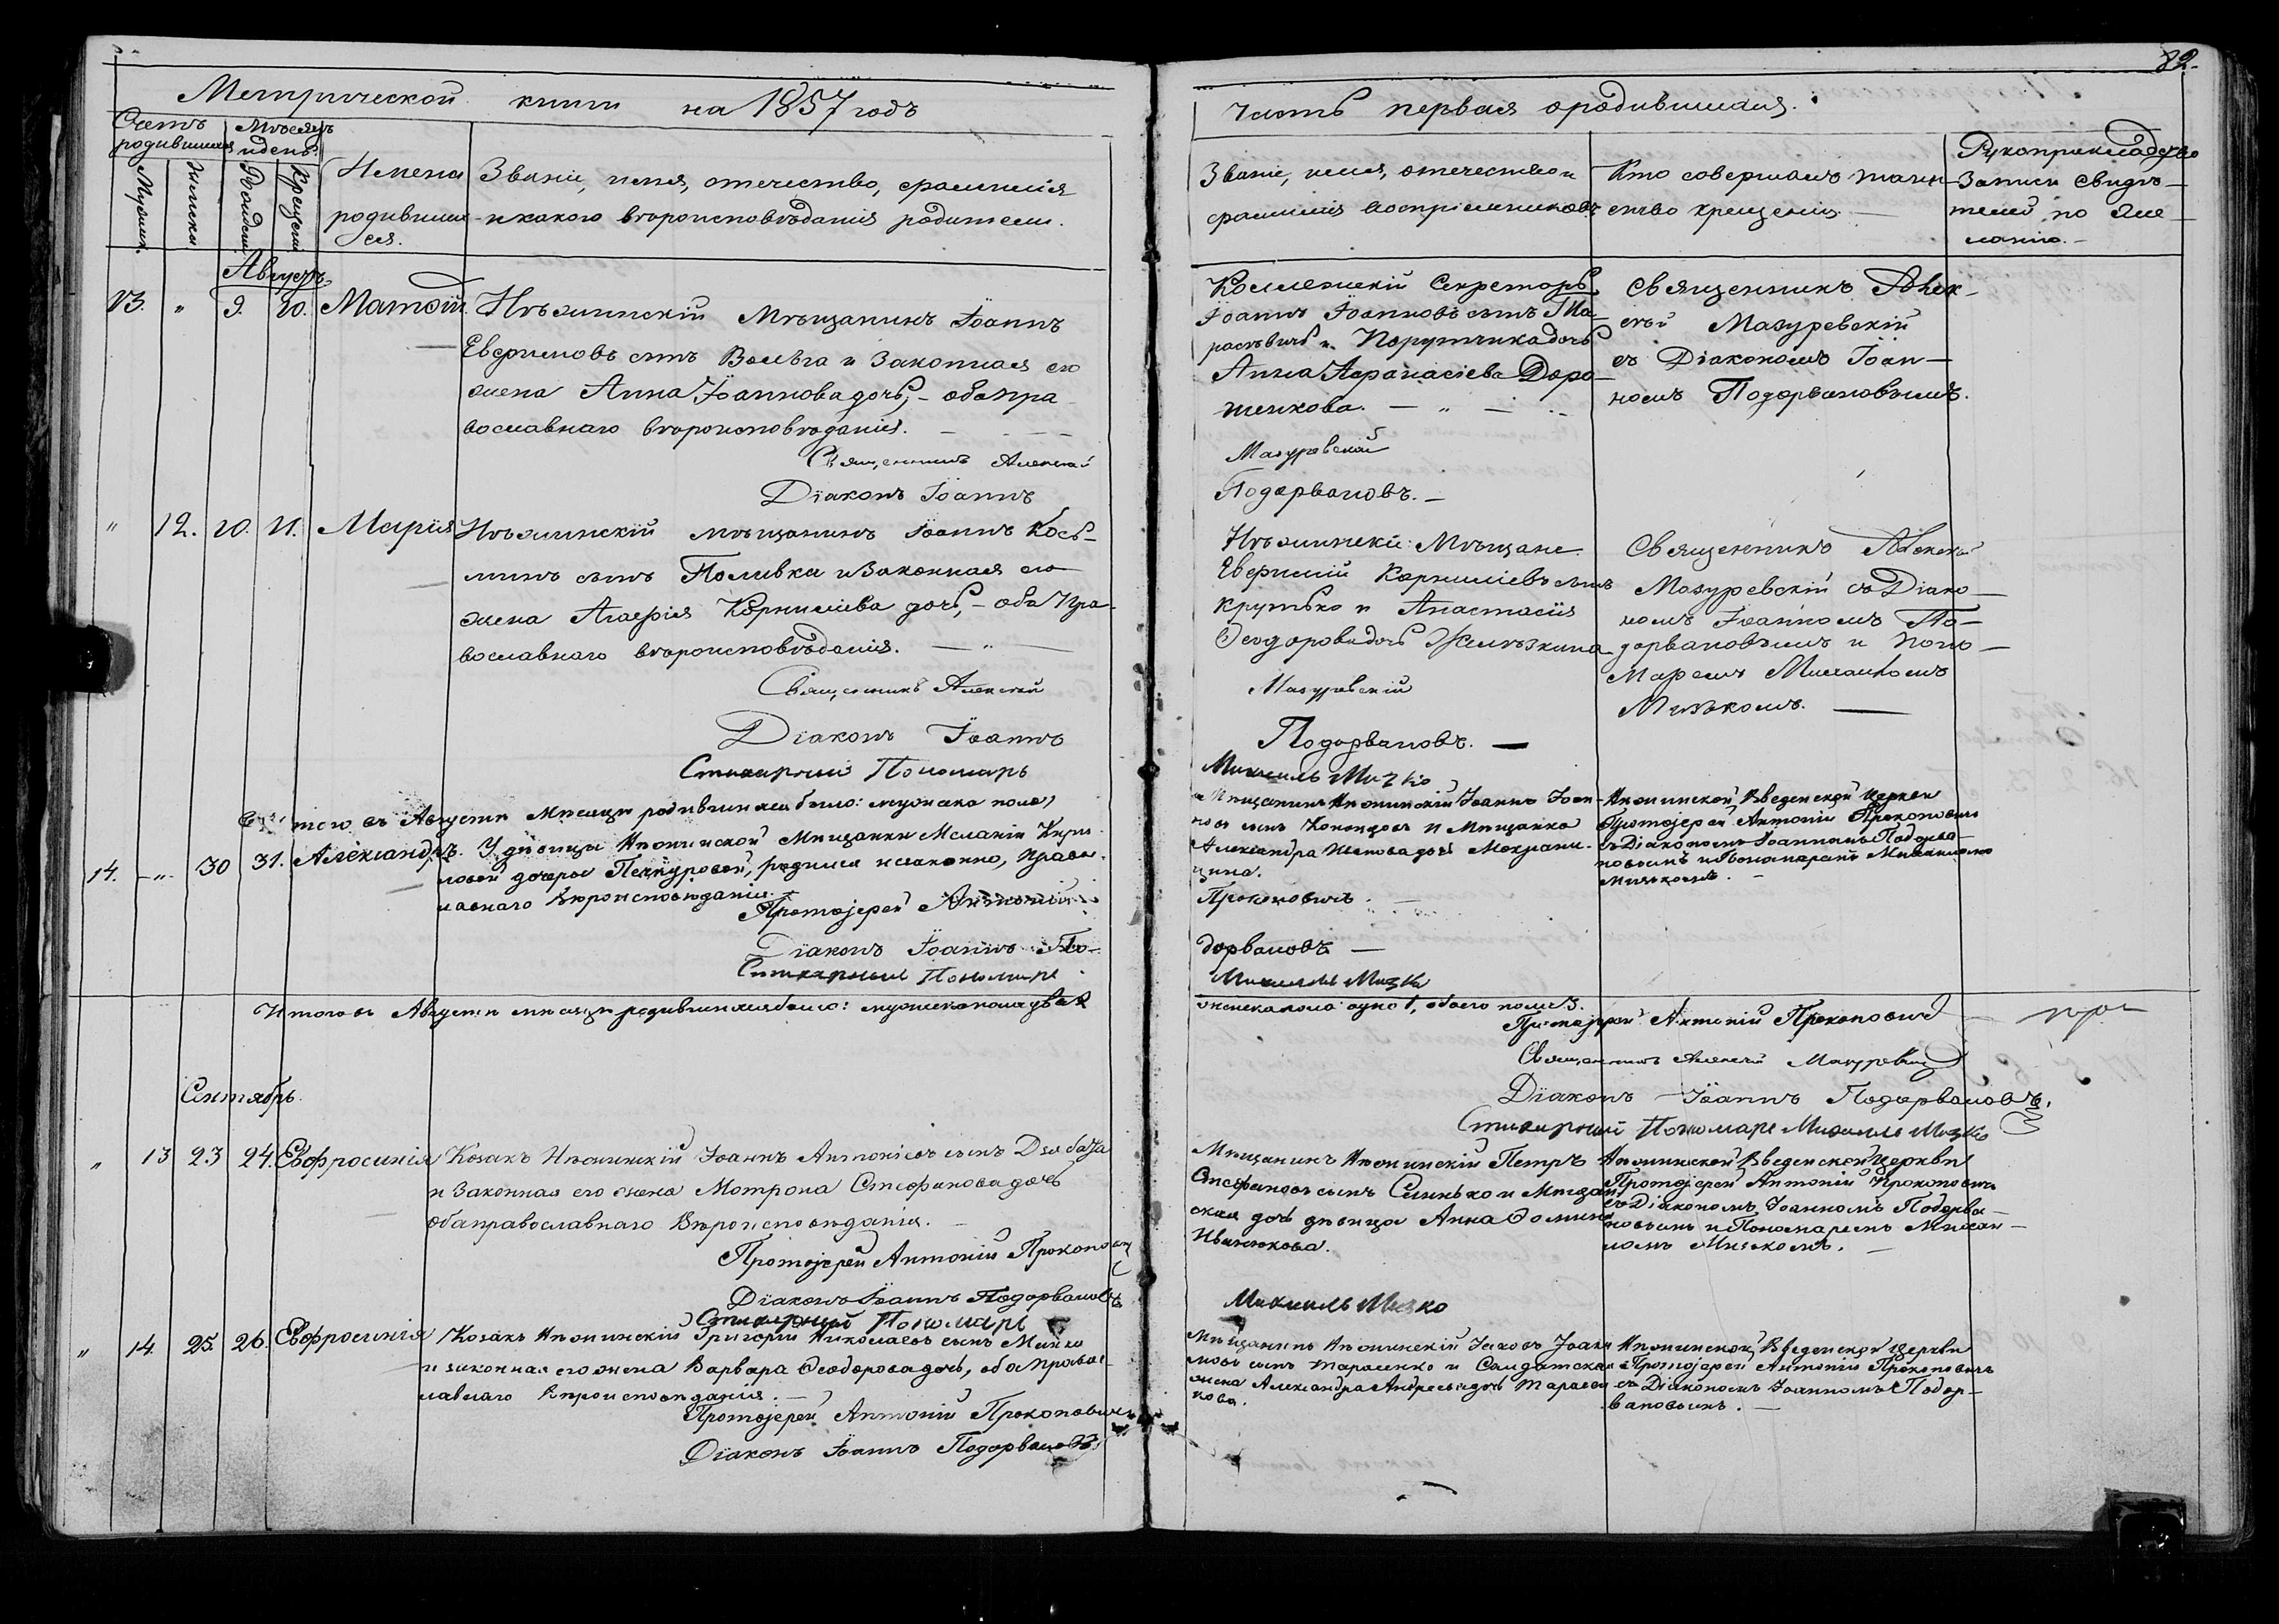 82.
Метрической книги на 1857 годъ
часть первая о родившихся.
Счетъ родившихся
Мѣсяцъ и день.
Мужеск.
Женски
Рожден.
Крещен.
Имена
родивших
ся.
Званіе, имя, отечество, фамилія
и какого вѣроисповѣданія родители.
Званіе, имя, отечество и
фамилія воспріемниковъ
Кто совершалъ таин-
ство крещенія.
Рукоприкладство
записи свидѣ-
телей по же-
ланію.
Августъ
13. " 9. 10. Матѳій
Нѣжинскій Мѣщанинъ Іоаннъ
Евфимовъ сынъ Вольга и Законная его
жена Анна Іоаннова дочь, - оба пра
вославнаго вѣроисповѣданія.
Священникъ Алексѣй
Діаконъ Іоаннъ
Коллежскій Секретарь
Іоаннъ Іоанновъ сынъ Та-
расѣвичъ и Порутчика дочь
Анна Аѳанасіева Доро-
шенкова.
Мазуревскій
Подорвановъ.
Священникъ Алек-
сѣй Мазуревскій
съ Діакономъ Іоан-
номъ Подорвановымъ.
" 12. 10. 11. Марія
Нѣжинскій мѣщанинъ Іоаннъ Кось-
минъ сынъ Поливка и Законная его
жена Агафія Корниліева дочь, - оба Пра-
вославнаго вѣроисповѣданія.
Священникъ Алексѣй
Діаконъ Іоаннъ
Стихарный Пономарь
Нѣжинскіе Мѣщане
Евфимій Корниліевъ сынъ
Крутько и Анастасія
Ѳеодорова дочь Желѣзкина
Мазуревскій
Подорвановъ.
Михаилъ Мизко
Священникъ Алексѣй
Мазуревскій съ Діако-
номъ Іоанномъ По-
дорвановымъ и Поно-
маремъ Михаиломъ
Мизькомъ.
того въ Августѣ Мѣсяцѣ родившихся было: мужеска пола,
14. " 30 31. Александръ.
У дѣвицы Нѣжинской Мѣщанки Меланіи Кири
ловой дочери Печкуровой, родился незаконно, Правос
лавнаго Вѣроисповѣданія.
Протоіерей Антоній
Діаконъ Іоаннъ По-
Стихарный Пономарь
Мѣщанинъ Нѣжинскій Іоаннъ Іоан-
новъ сынъ Кононцовъ и Мѣщанка
Александра Иванова дочь Мокрани-
цина.
Прокоповичъ
дорвановъ
Михаилъ Мизко
Нѣжинской Введенской Церкви
Протоіерей Антоній Прокоповичъ
съ Діакономъ Іоанномъ Подорва-
новымъ и Пономаремъ Михаиломъ
Мизькомъ.
Итого въ Августѣ мѣсяцѣ родившихся было: мужеска пола два 2
женска пола одно 1, обоего пола 3.
Протоіерей Антоній Прокоповичъ
Священникъ Алексѣй Мазуревскій
Діаконъ Іоаннъ Подорвановъ.
Стихарный Пономарь Михаилъ Мизко
Сентябрь
" 13 23 24. Евфросинія
Козакъ Нѣжинскій Іоаннъ Антоніевъ сынъ Дзюбаза
и Законная его жена Мотрона Стефанова дочь
оба православнаго Вѣроисповѣданія.
Протоіерей Антоній Прокоповичъ
Діаконъ Іоаннъ Подорвановъ
Стихарный Пономарь
Мѣщанинъ Нѣжинскій Петръ
Стефановъ сынъ Синько и Мѣщан
ская дочь дѣвица Анна Ѳомина
Иваненкова.
Михаилъ Мизко
Нѣжинской Введенской Церкви
Протоіерей Антоній Прокоповичъ
съ Діакономъ Іоанномъ Подорва-
новымъ и Пономаремъ Михаи-
ломъ Мизькомъ.
" 14. 25. 26. Евфросинія
Козакъ Нѣжинскій Григорій Николаевъ сынъ Мишко
и законная его жена Варвара Ѳеодорова дочь, оба правос-
лавнаго Вѣроисповѣданія.
Протоіерей Антоній Прокоповичъ
Діаконъ Іоаннъ Подорвановъ
Мѣщанинъ Нѣжинскій Іаковъ Іоан
новъ сынъ Тарасенко и Солдатская
жена Александра Андреева дочь Тарасен
кова.
Нѣжинской Введенской Церкви
Протоіерей Антоній Прокоповичъ
съ Діакономъ Іоанномъ Подор-
вановымъ.